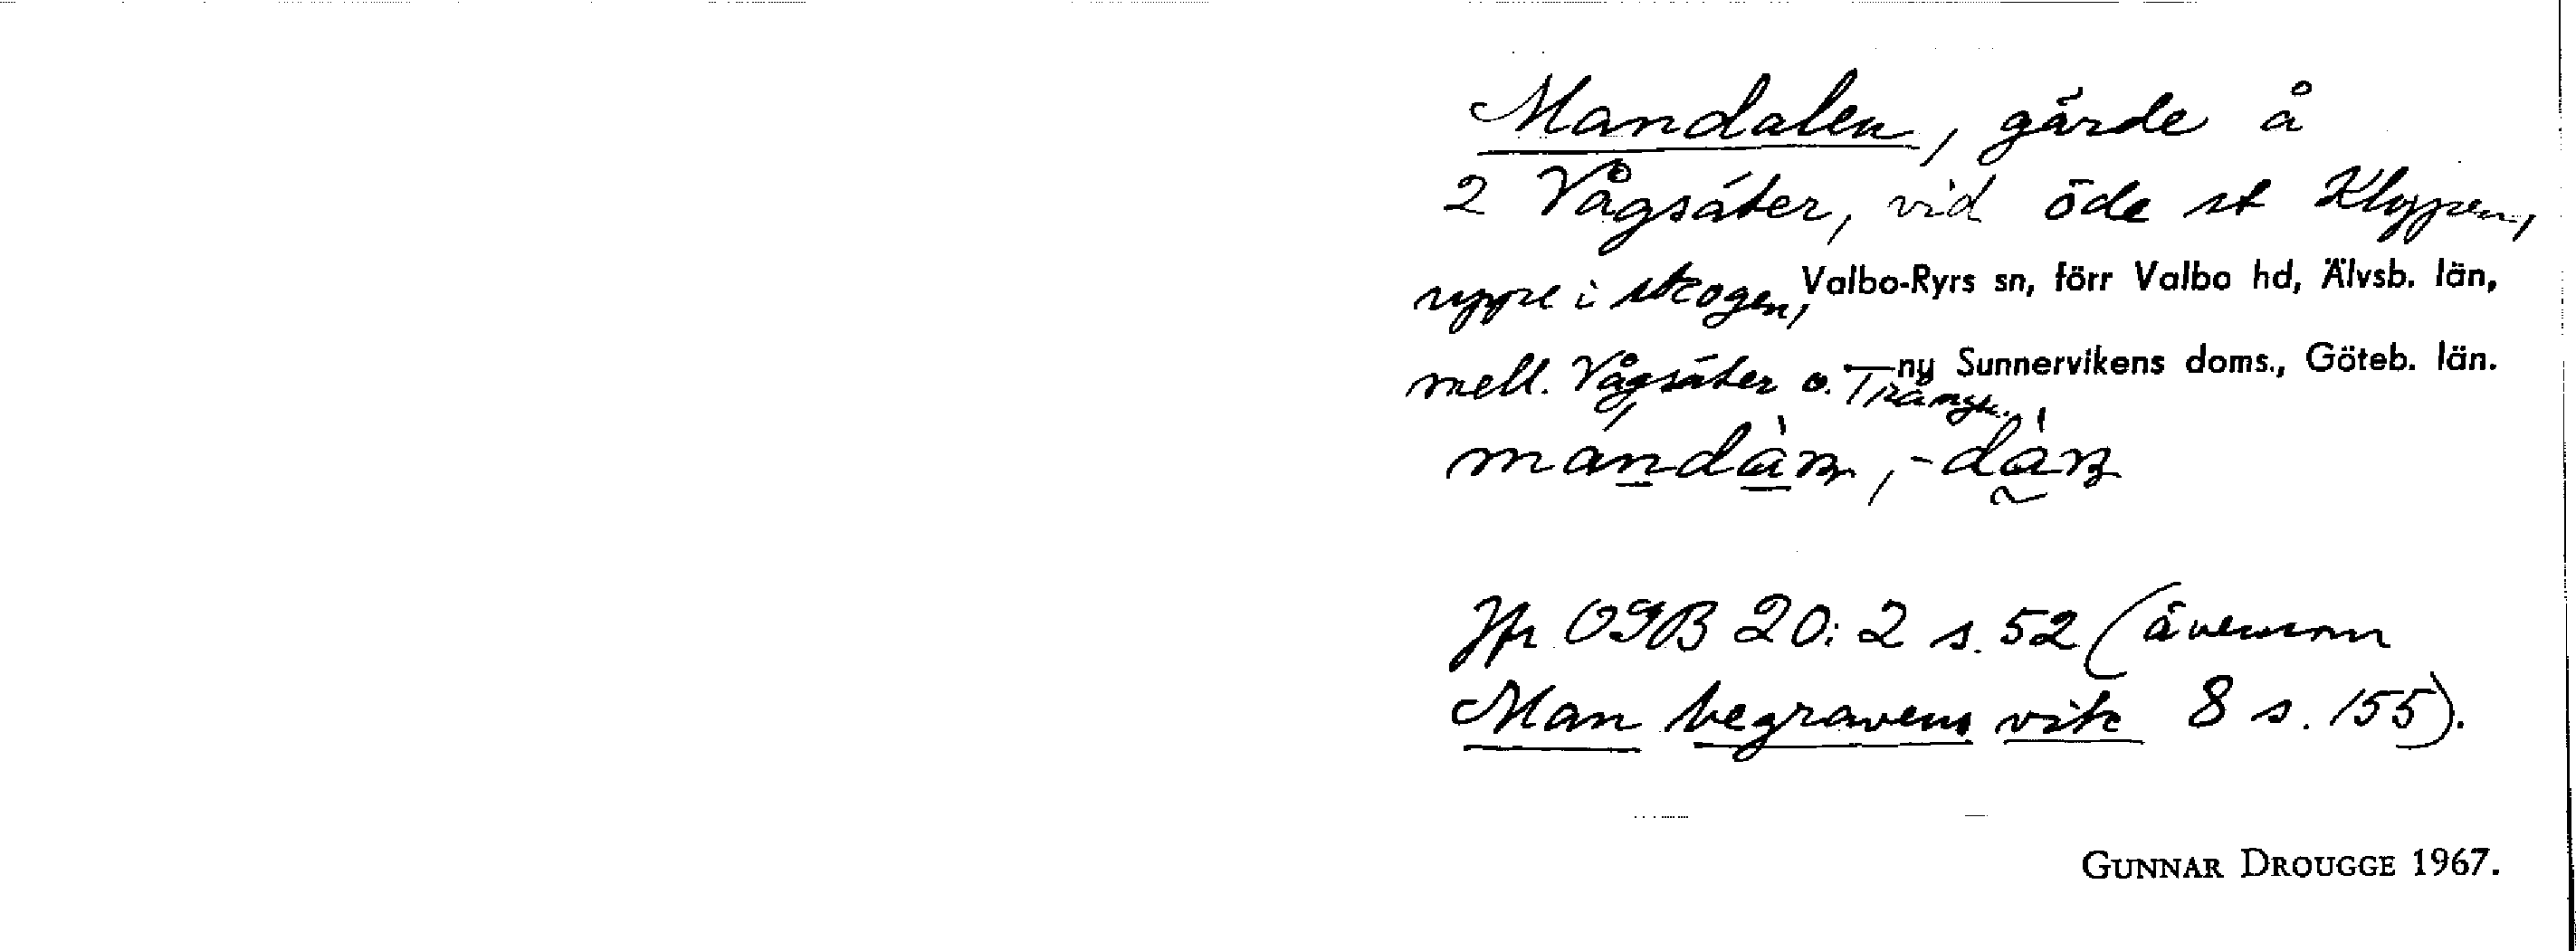 Mandalen, gärde å
2 Vågsäter, vid öde st Klyppen,
uppe i skogen, Valbo-Ryrs sn, förr Valbo hd, Älvsb. län,
mell. Vågsäter o. ny Sunnervikens doms., Göteb. län.
Jfr OGB 20:2 s. 52 (ävensom
Man begravens vik 8 s. 155).
GUNNAR DROUGGE 1967.